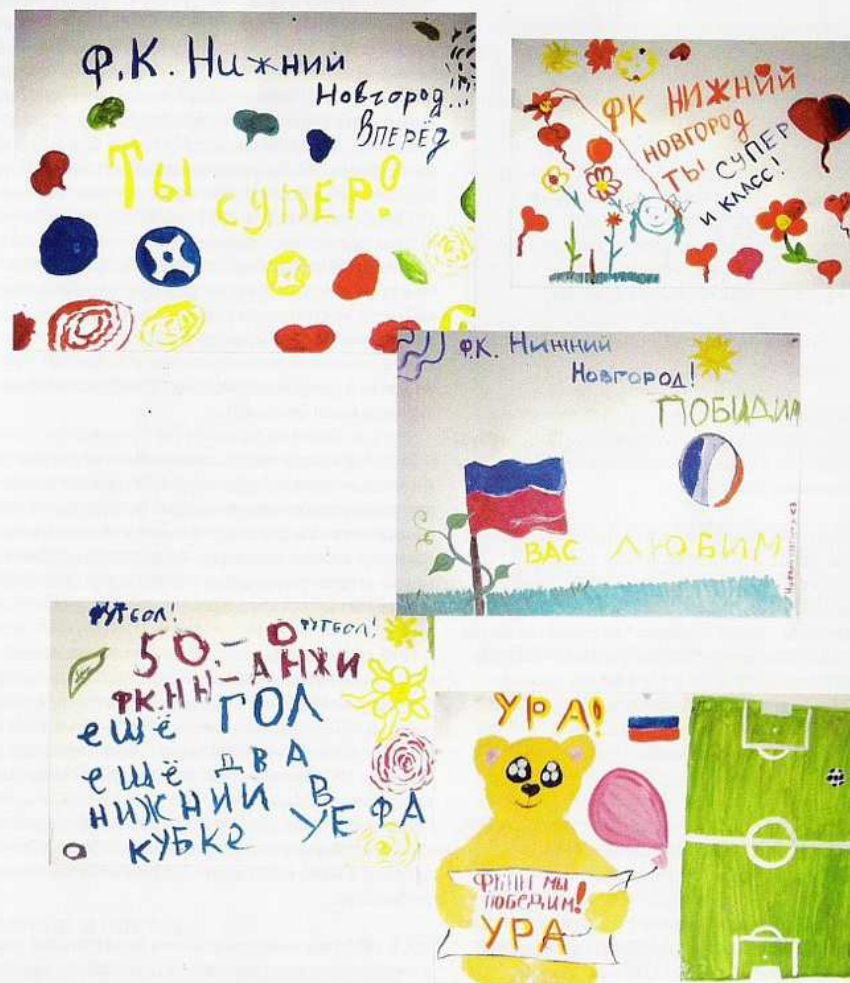 Ф.К. Нижний
Новгород...
Вперёд
Ты
супер!
ФК НИЖНИЙ
НОВГОРОД
ТЫ СУПЕР
И КЛАСС!
Ф.К. Нижний
Новгород!
ПОБИДИМ
ВАС ЛЮБИМ
ФУТБОЛ!
ФУТБОЛ!
50 - 0
ФК.НН-АНЖИ
ещё ГОЛ
ещё ДВА
НИЖНИЙ В
КУБКе УЕФА
УРА!
ФКНН МЫ
ПОБЕДИМ!
УРА